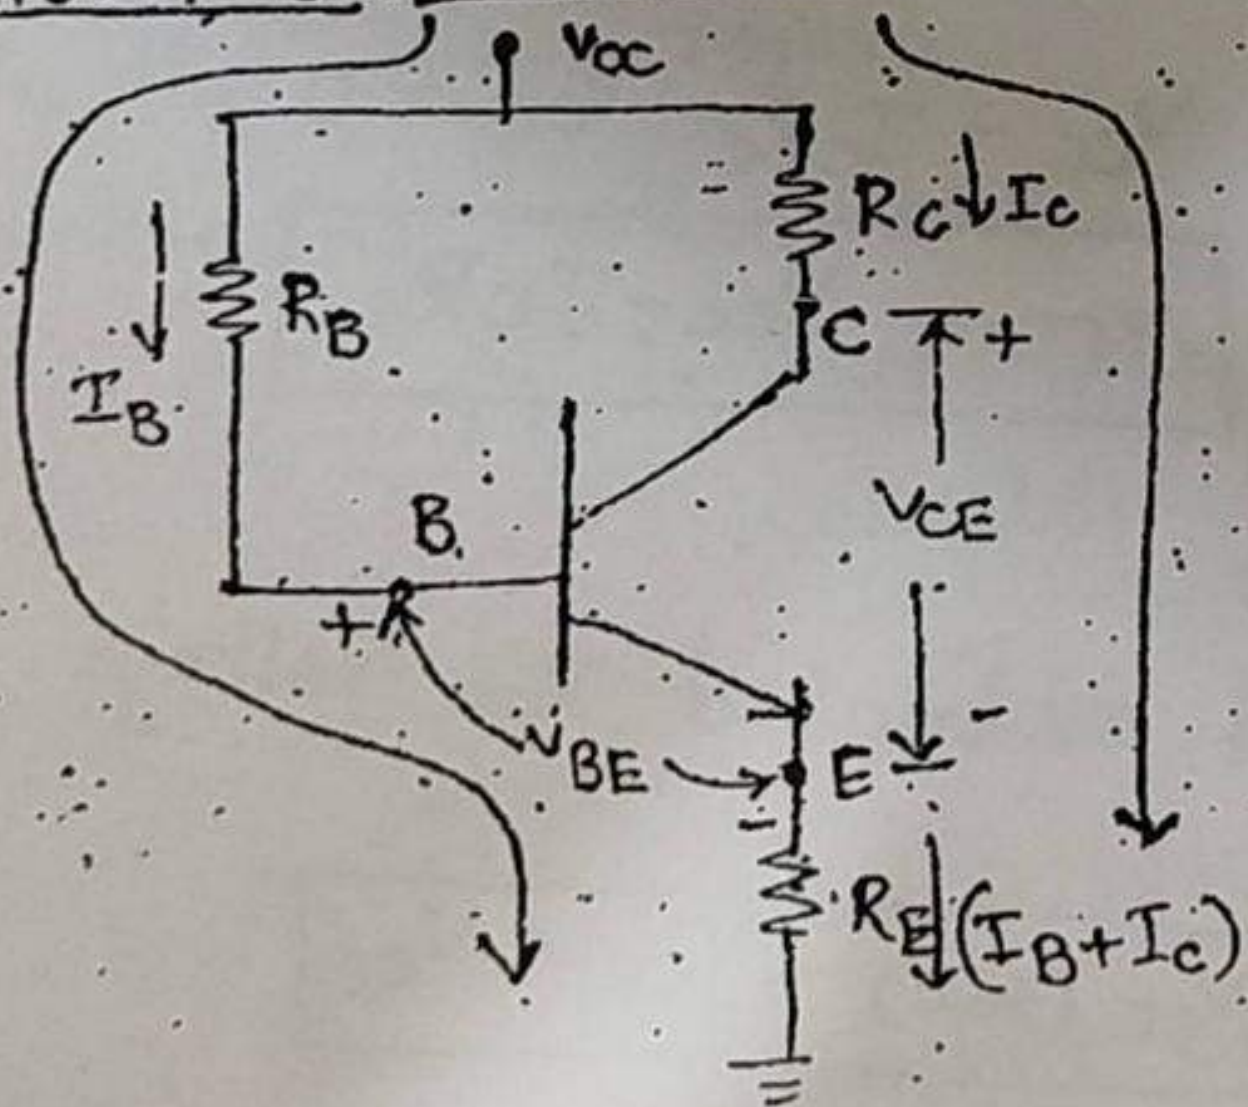 VCC
RC IC
RB
C +
IB
B
VCE
+
-
VBE
E
-
RE (IB+IC)